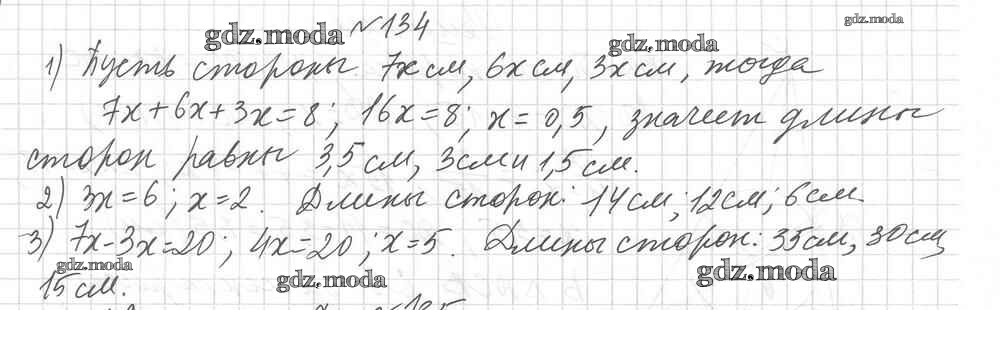 gdz.moda №134 gdz.moda
gdz.moda
1) Пусть стороны 7x см, 6x см, 3x см, тогда
7x+6x+3x=8; 16x=8; x=0,5, значит длины
сторон равны 3,5 см, 3см и 1,5 см.
2) 3x=6; x=2. Длины сторон: 14см; 12см; 6см.
3) 7x-3x=20; 4x=20; x=5. Длины сторон: 35см, 30см,
gdz.moda gdz.moda gdz.moda
15 см.